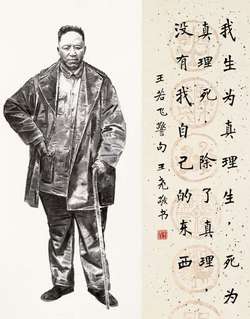 我生为真理生，死为
真理死，除了真理，
没有我自己的东西
王若飞警句 王尧敬书